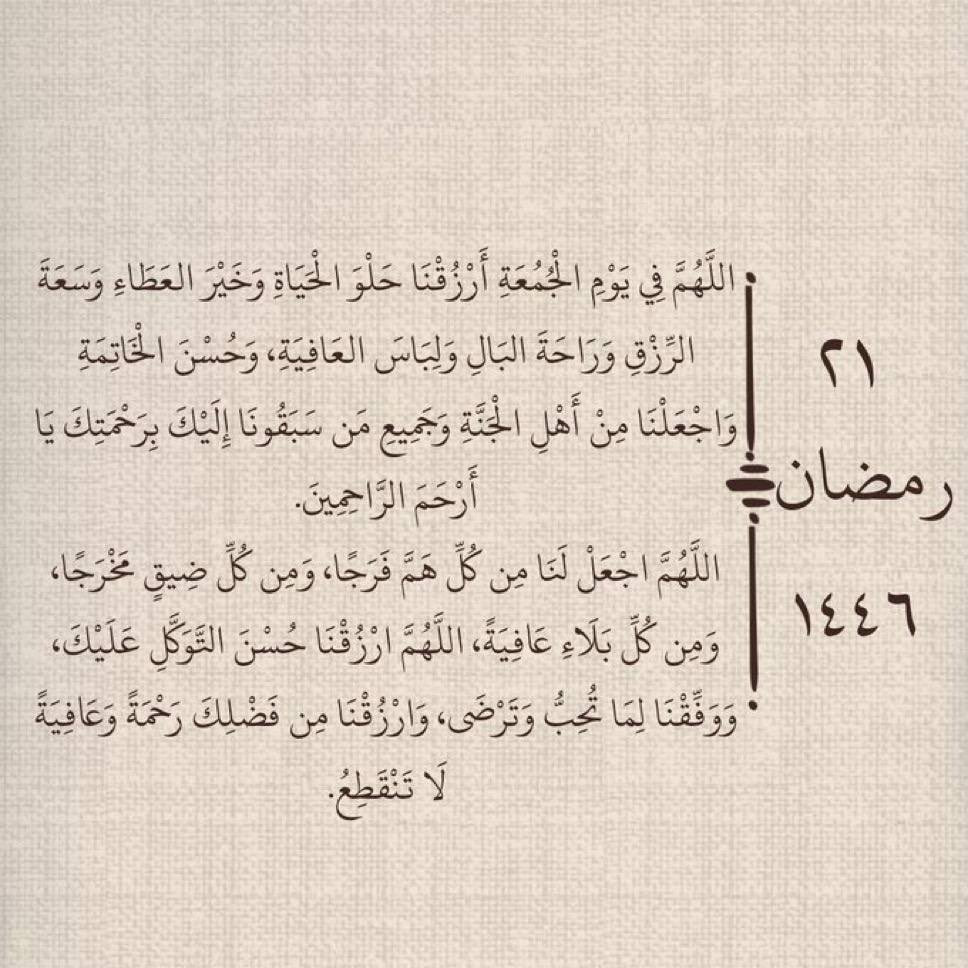 ٢١
رمضان
١٤٤٦
اللَّهُمَّ فِي يَوْمِ الْجُمُعَةِ أَرْزُقْنَا حَلْوَ الْحَيَاةِ وَخَيْرَ العَطَاءِ وَسَعَةَ
الرِّزْقِ وَرَاحَةَ البَالِ وَلِبَاسَ العَافِيَةِ، وَحُسْنَ الْخَاتِمَةِ
وَاجْعَلْنَا مِنْ أَهْلِ الْجَنَّةِ وَجَمِيعِ مَن سَبَقُونَا إِلَيْكَ بِرَحْمَتِكَ يَا
أَرْحَمَ الرَّاحِمِينَ.
اللَّهُمَّ اجْعَلْ لَنَا مِن كُلِّ هَمَّ فَرَجًا، وَمِن كُلِّ ضِيقٍ مَخْرَجًا،
وَمِن كُلِّ بَلَاءِ عَافِيَةً، اللَّهُمَّ ارْزُقْنَا حُسْنَ التَّوَكَّلِ عَلَيْكَ،
وَوَفِّقْنَا لِمَا تُحِبُّ وَتَرْضَى، وَارْزُقْنَا مِن فَضْلِكَ رَحْمَةً وَعَافِيَةً
لَا تَنْقَطِعُ.